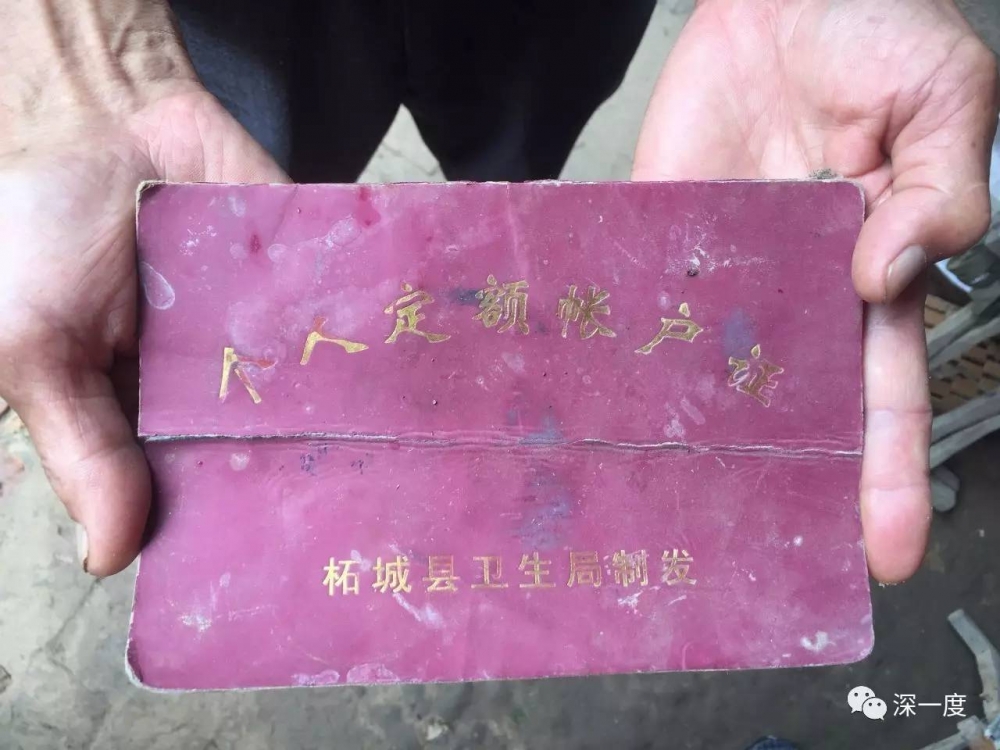 个人定额帐户证
柘城县卫生局制发
深一度